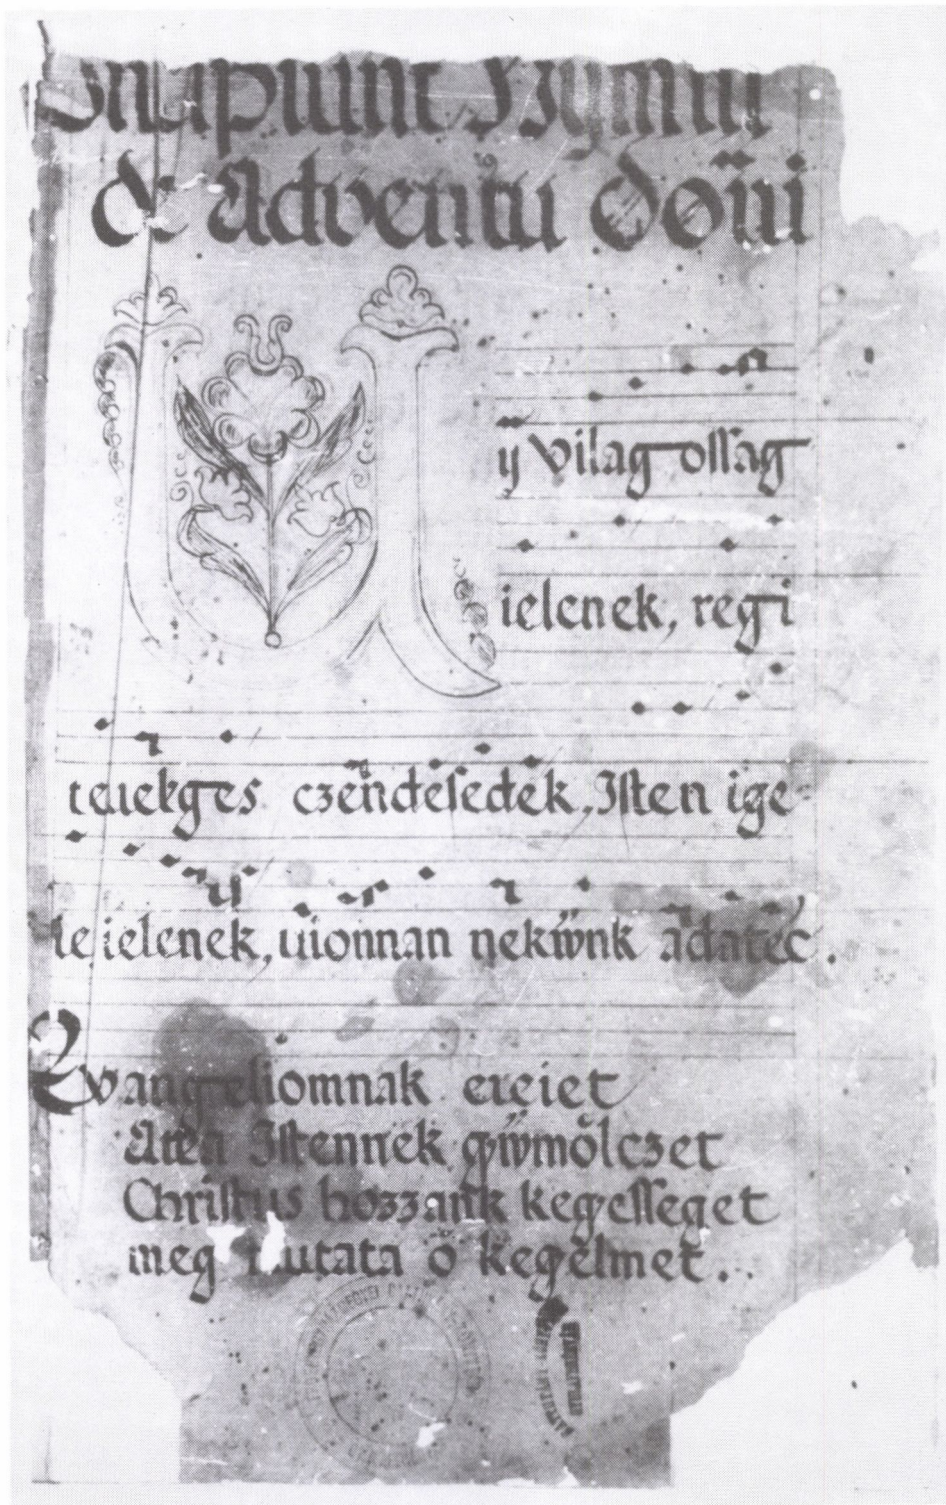 Incipiunt Hymni
de Adventu Dom̄i
Uÿ Vilag ossag
ielenek, regi
teuekges czendesedek, Isten ige
le ielenek, uionnan nekẅnk adatec.
Evangeliomnak ereiet
Aten Istennek gẅmölczet
Christus hozzank kegesseget
meg mutata ö kegelmet.